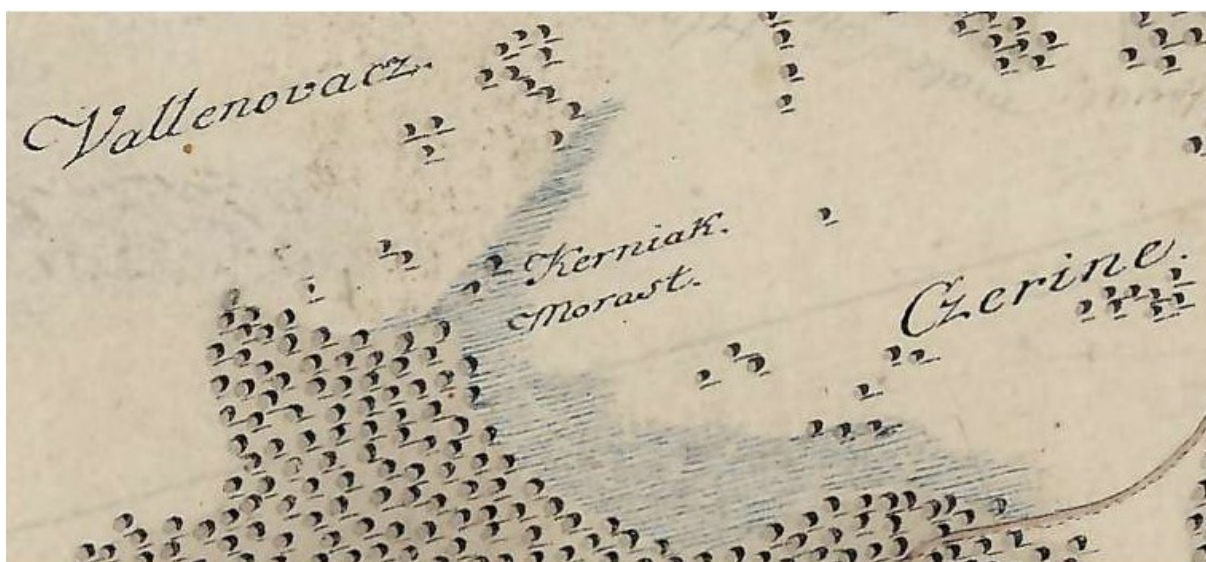 Vallenovacz.
Kerniak.
Morast.
Czerine.